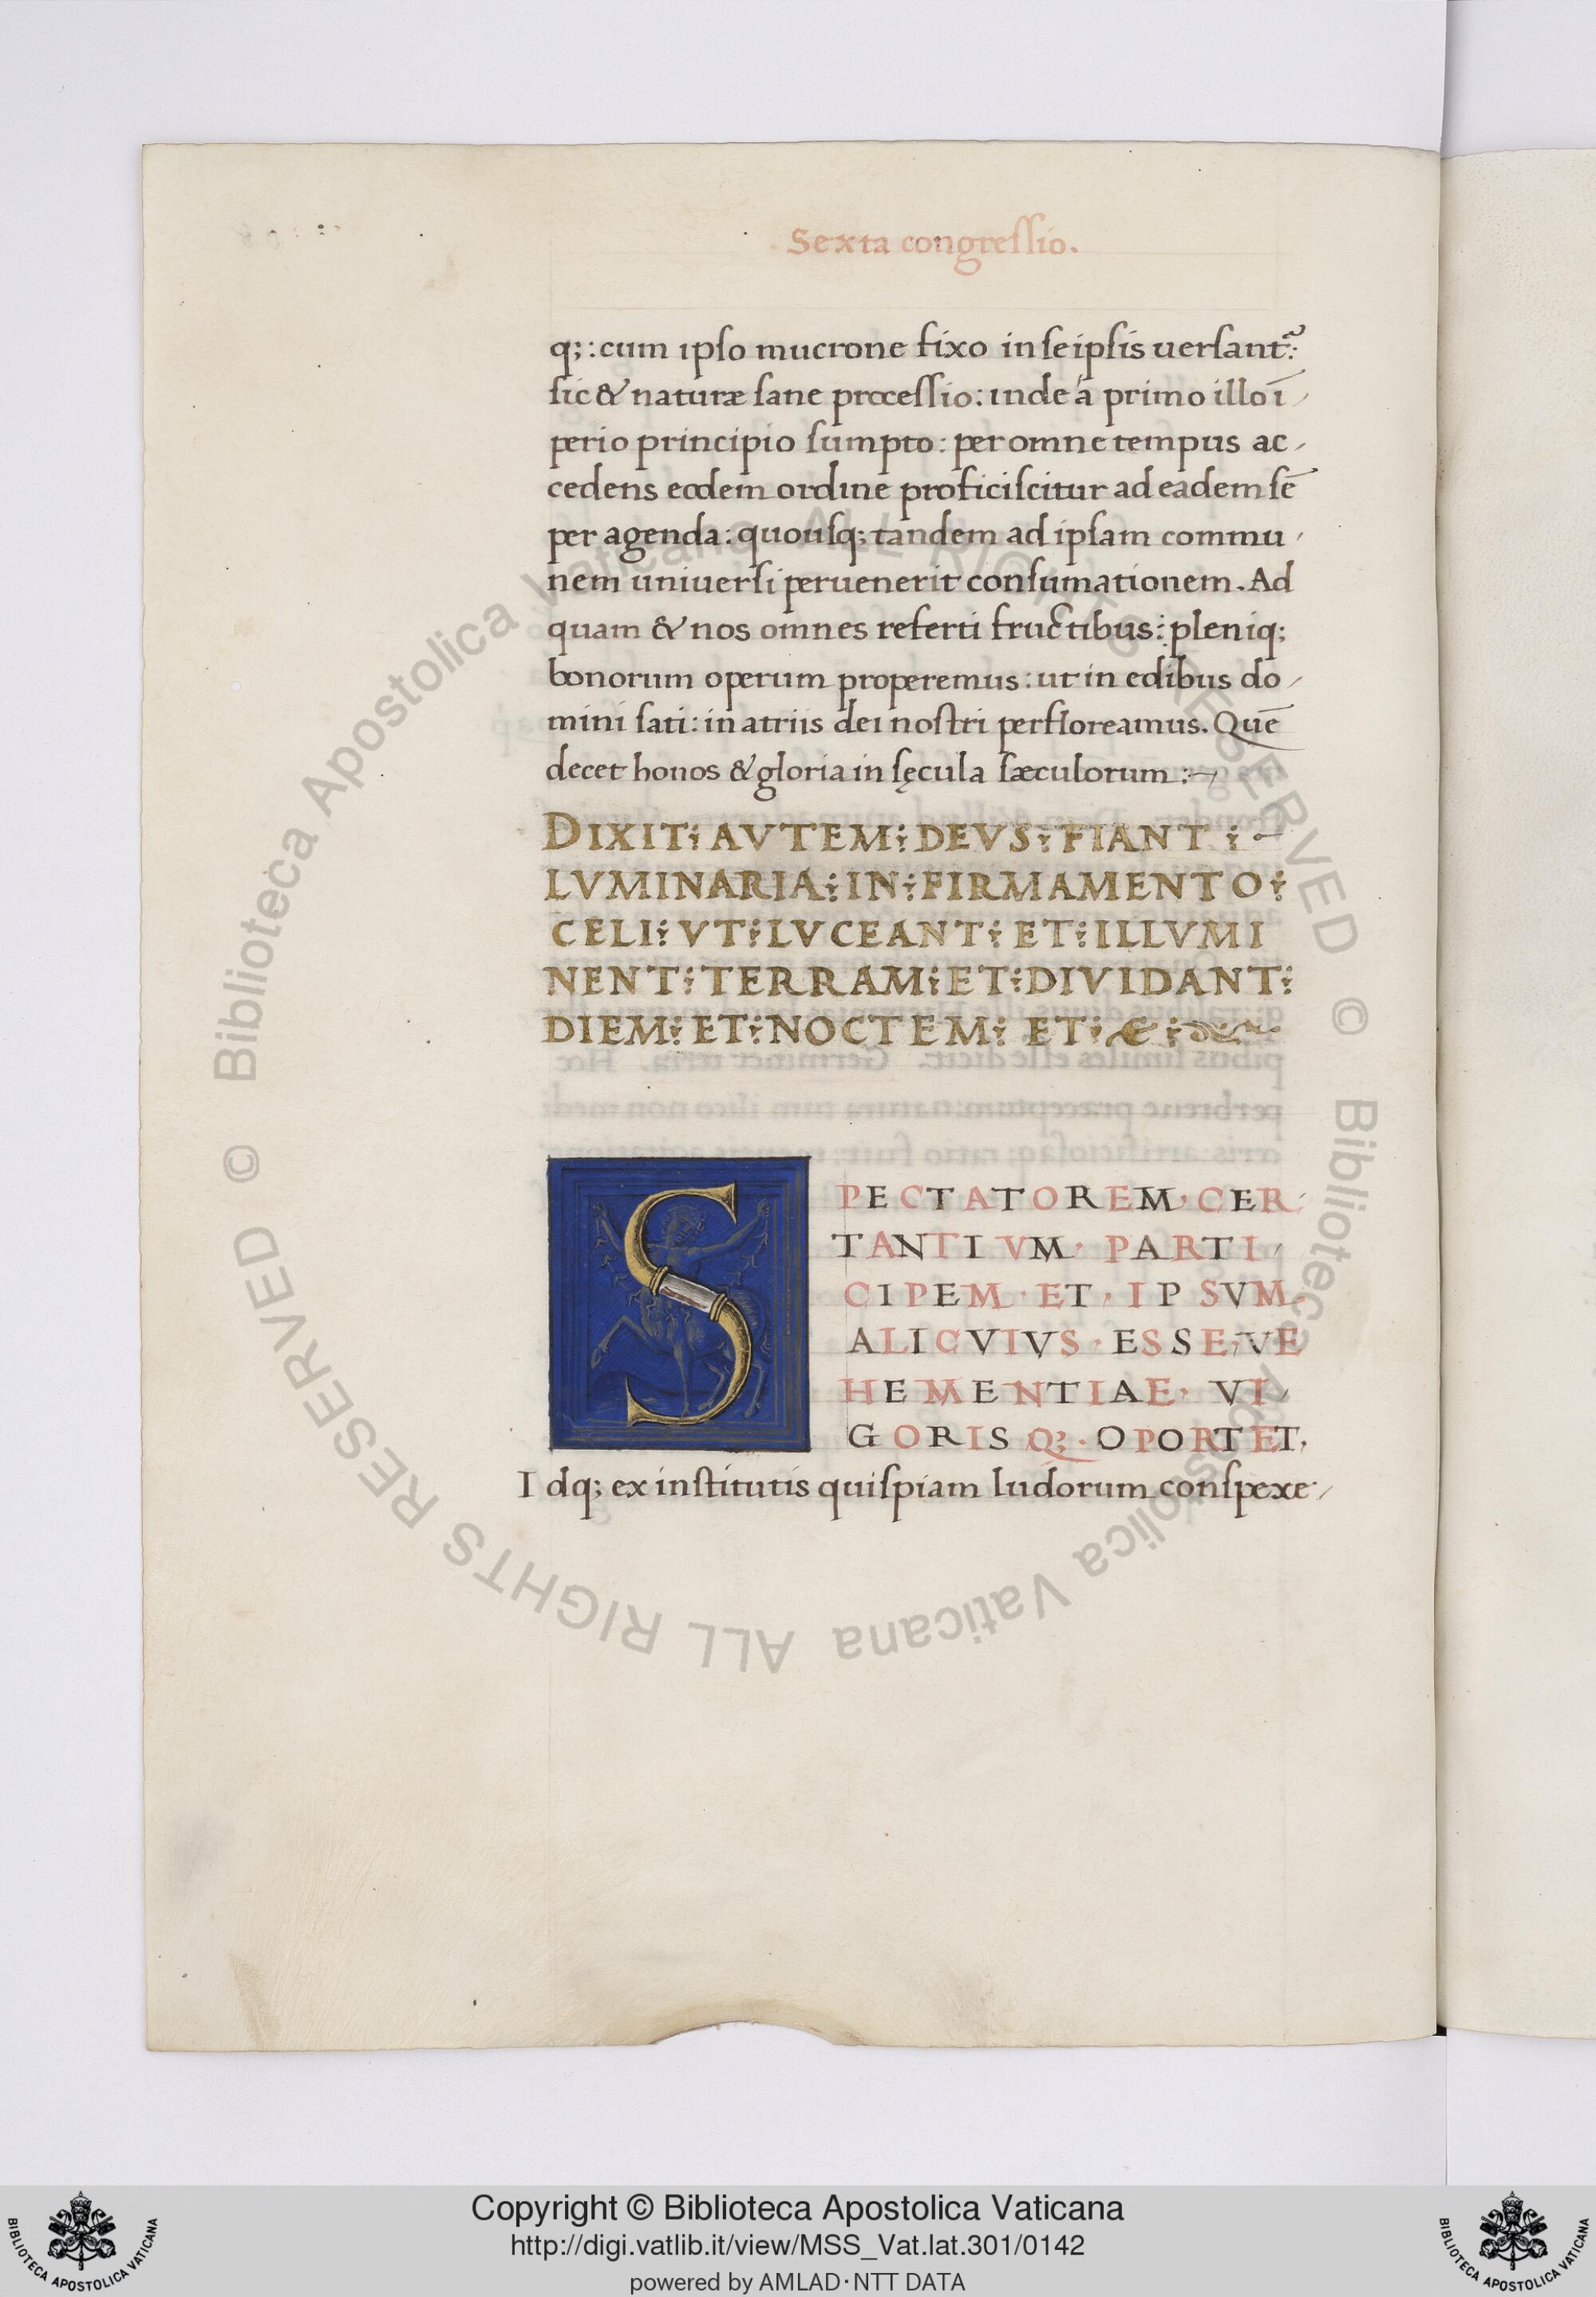 Sexta congressio.
q;: cum ipso mucrone fixo in seipsis uersant᷑:
sic & naturæ sane processio: inde a primo illo ī
perio principio sumpto: per omne tempus ac-
cedens eodem ordine proficiscitur ad eadem sē
per agenda: quousq; tandem ad ipsam commu-
nem uniuersi peruenerit consumationem. Ad
quam & nos omnes referti fructibus: pleniq;
bonorum operum properemus: ut in edibus do-
mini sati: in atriis dei nostri perfloreamus. Quē
decet honos & gloria in sęcula sæculorum:~
DIXIT: AVTEM: DEVS: FIANT:
LVMINARIA: IN: FIRMAMENTO:
CELI: VT: LVCEANT: ET: ILLVMI
NENT: TERRAM: ET: DIVIDANT:
DIEM: ET: NOCTEM: ET:
SPECTATOREM · CER
TANTIVM · PARTI
CIPEM · ET · IPSVM ·
ALICVIVS · ESSE · VE
HEMENTIAE · VI
GORISQ; · OPORTET,
Idq; ex institutis quispiam ludorum conspexe-
© Biblioteca Apostolica Vaticana ALL RIGHTS RESERVED
© Biblioteca Apostolica Vaticana ALL RIGHTS RESERVED
Copyright © Biblioteca Apostolica Vaticana
http://digi.vatlib.it/view/MSS_Vat.lat.301/0142
powered by AMLAD·NTT DATA
BIBLIOTECA APOSTOLICA VATICANA
BIBLIOTECA APOSTOLICA VATICANA